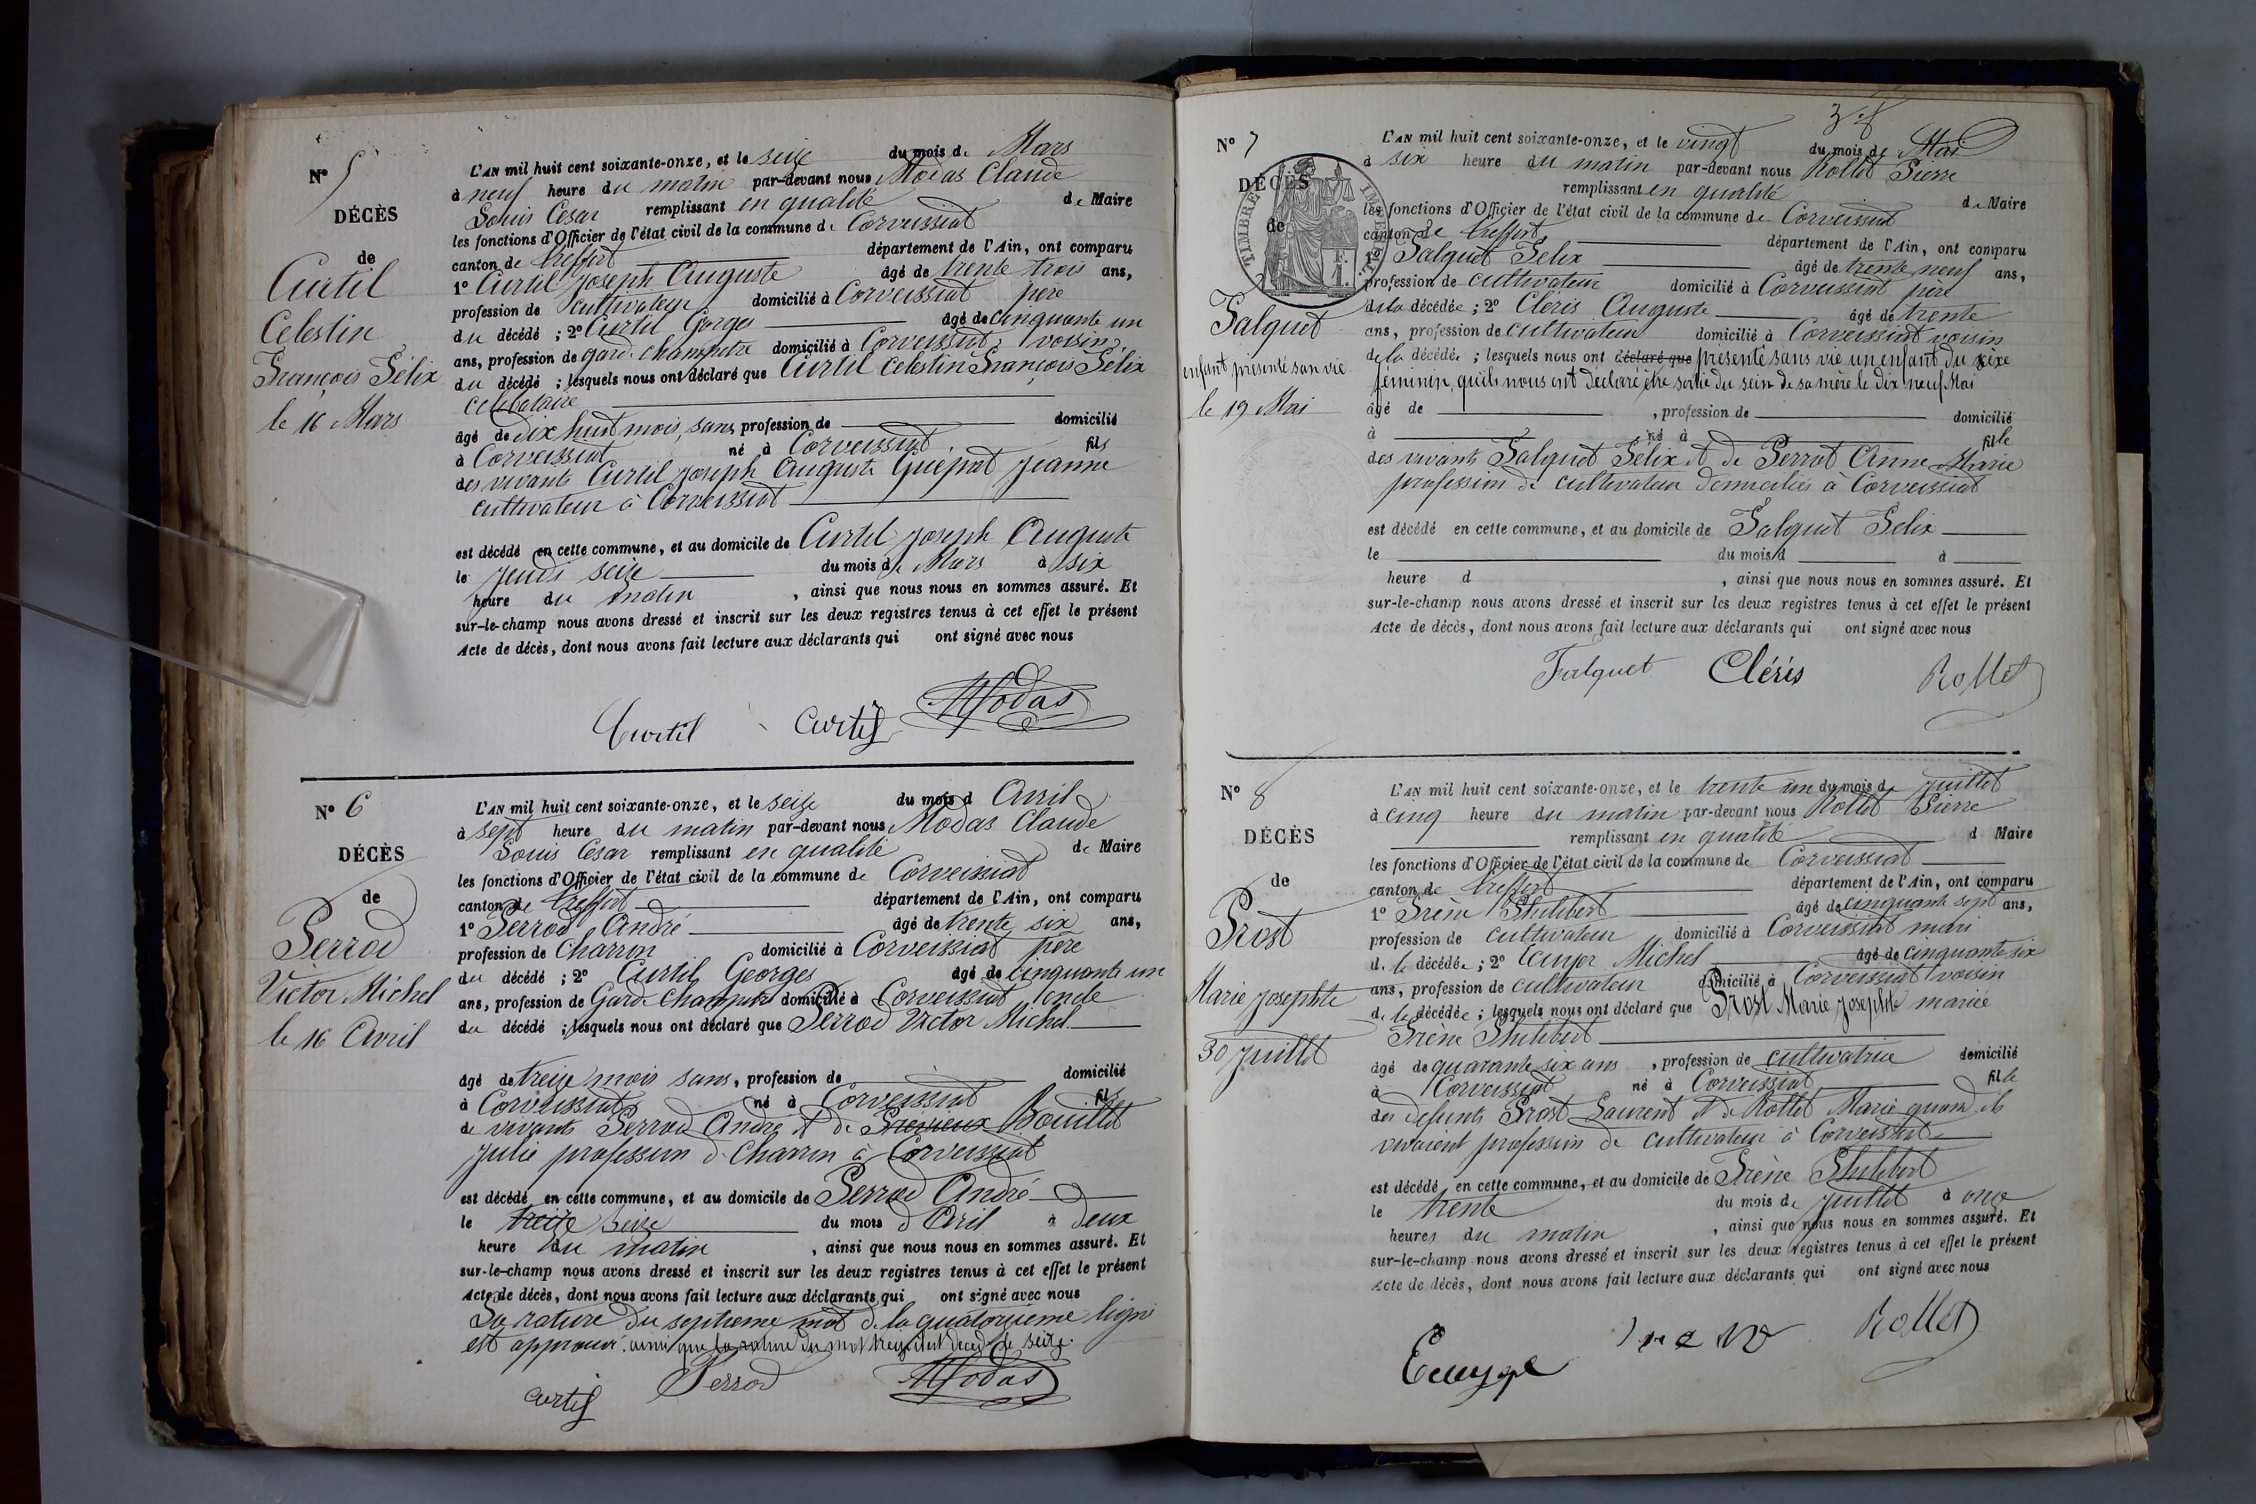 N° 5
DÉCÈS
de
Curtil
Celestin
François Félix
le 16 Mars
L'AN mil huit cent soixante-onze, et le seize du mois de Mars
à neuf heure du matin par-devant nous Modas Claude
Louis Cesar remplissant en qualité de Maire
les fonctions d'Officier de l'état civil de la commune de Corveissiat
canton de treffort département de l'Ain, ont comparu
1° Curtil Joseph Auguste âgé de trente trois ans,
profession de cultivateur domicilié à Corveissiat père
du décédé ; 2° Curtil Gorges âgé de cinquante un
ans, profession de garde champetre domicilié à Corveissiat voisin
du décédé ; lesquels nous ont déclaré que Curtil Celestin François Félix
celibataire
âgé de dix huit mois, sans profession de domicilié
à Corveissiat né à Corveissiat fils
des vivants Curtil Joseph Auguste Guéprat Jeanne
cultivateur à Corveissiat
est décédé en cette commune, et au domicile de Curtil Joseph Auguste
le jeudi seize du mois de Mars à six
heure du matin , ainsi que nous nous en sommes assuré. Et
sur-le-champ nous avons dressé et inscrit sur les deux registres tenus à cet effet le présent
Acte de décès, dont nous avons fait lecture aux déclarants qui ont signé avec nous
Curtil Curtil Modas
N° 6
DÉCÈS
de
Perrod
Victor Michel
le 16 Avril
L'AN mil huit cent soixante-onze, et le seize du mois d Avril
à sept heure du matin par-devant nous Modas Claude
Louis Cesar remplissant en qualité de Maire
les fonctions d'Officier de l'état civil de la commune de Corveissiat
canton de treffort département de l'Ain, ont comparu
1° Perrod André âgé de trente six ans,
profession de Charron domicilié à Corveissiat père
du décédé ; 2° Curtil Georges âgé de cinquante un
ans, profession de Garde Champetre domicilié à Corveissiat oncle
du décédé ; lesquels nous ont déclaré que Perrod Victor Michel
âgé de treize mois sans, profession de domicilié
à Corveissiat né à Corveissiat fils
de vivants Perrod André et de Bouillet
Julie profession de Charron à Corveissiat
est décédé en cette commune, et au domicile de Perrod André
le treize seize du mois d'Avril à deux
heure du matin , ainsi que nous nous en sommes assuré. Et
sur-le-champ nous avons dressé et inscrit sur les deux registres tenus à cet effet le présent
Acte de décès, dont nous avons fait lecture aux déclarants qui ont signé avec nous
La rature du septieme mot de la quatorzieme ligne
est approuvé. ainsi que la rature du mot treize seize.
Curtil Perrod Modas
N° 7
TIMBRE IMPERIAL
F.
1.
DÉCÈS
de
Falquet
enfant présenté san vie
le 19 Mai
L'AN mil huit cent soixante-onze, et le vingt du mois de Mai
à six heure du matin par-devant nous Rollet Pierre
remplissant en qualité de Maire
les fonctions d'Officier de l'état civil de la commune de Corveissiat
canton de treffort département de l'Ain, ont comparu
1° Falquet Félix âgé de trente neuf ans,
profession de cultivateur domicilié à Corveissiat père
de la décédée ; 2° Cléris Auguste âgé de trente
ans, profession de cultivateur domicilié à Corveissiat voisin
de la décédée ; lesquels nous ont déclaré que présenté sans vie un enfant du sixe
féminin, qu'ils nous ont déclaré être sortie du sein de sa mère le dix neuf Mai
âgé de , profession de domicilié
à né à fille
des vivants Falquet Félix et de Perrot Anne Marie
profession de cultivateur domiciliés à Corveissiat
est décédé en cette commune, et au domicile de Falquet Félix
le du mois d à
heure d , ainsi que nous nous en sommes assuré. Et
sur-le-champ nous avons dressé et inscrit sur les deux registres tenus à cet effet le présent
Acte de décès, dont nous avons fait lecture aux déclarants qui ont signé avec nous
Falquet Cléris Rollet
N° 8
DÉCÈS
de
Prost
Marie Josephte
30 Juillet
L'AN mil huit cent soixante-onze, et le trente un du mois de Juillet
à cinq heure du matin par-devant nous Rollet Pierre
remplissant en qualité d Maire
les fonctions d'Officier de l'état civil de la commune de Corveissiat
canton de treffort département de l'Ain, ont comparu
1° Irène Philibert âgé de cinquante sept ans,
profession de cultivateur domicilié à Corveissiat mari
de la décédée ; 2° Ecuyer Michel âgé de cinquante six
ans, profession de cultivateur domicilié à Corveissiat voisin
de la décédée ; lesquels nous ont déclaré que Prost Marie Josephte mariée
Irène Philibert
âgé de quarante six ans , profession de cultivatrice domicilié
à Corveissiat né à Corveissiat fille
des defunts Prost Laurent et de Rollet Marie quand ils
vivaient profession de cultivateur à Corveissiat
est décédé en cette commune, et au domicile de Irène Philibert
le trente du mois de Juillet à onze
heures du matin , ainsi que nous nous en sommes assuré. Et
sur-le-champ nous avons dressé et inscrit sur les deux registres tenus à cet effet le présent
Acte de décès, dont nous avons fait lecture aux déclarants qui ont signé avec nous
Rollet